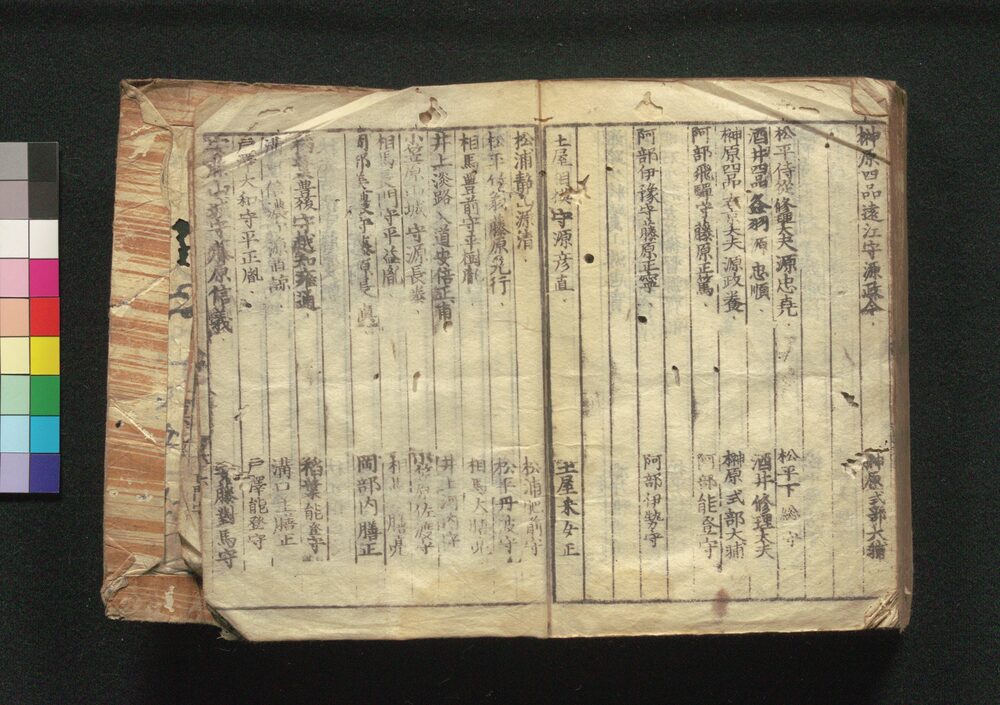 榊原四品遠江守源政令 榊原式部大輔
松平侍従修理大夫源忠堯 松平下総守
酒井四品 忠順 酒井修理大夫
榊原四品式部大夫源政養 榊原式部大輔
阿部飛騨守藤原正篤 阿部能登守
阿部伊豫守藤原正寧 阿部伊勢守
土屋但馬守源彦直 土屋采女正
松浦静山源清 松浦肥前守
松平 藤原 行 松平丹波守
相馬豊前守平 胤 相馬大膳亮
井上淡路入道安倍正甫 井上河内守
小笠原山城守源長 小笠原佐渡守
相馬 門平益胤 相馬大膳亮
岡部美濃守藤原長慎 岡部内膳正
稲葉豊後守越知雍通 稲葉能登守
溝口信濃守源直諒 溝口主膳正
戸澤大和守平正胤 戸澤能登守
安藤 守藤原信義 安藤對馬守